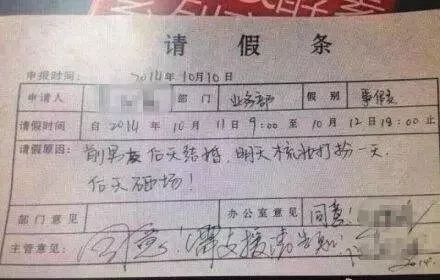 请假条
申报时间: 2014年10月10日
申请人 部门 业务部 假别 事假
请假时间 自2014年10月11日9:00至10月12日18:00止
请假原因: 前男友后天结婚,明天梳妆打扮一天,
后天砸场!
部门意见 办公室意见 同意!
主管意见: 同意!需支援请告知!
2014.